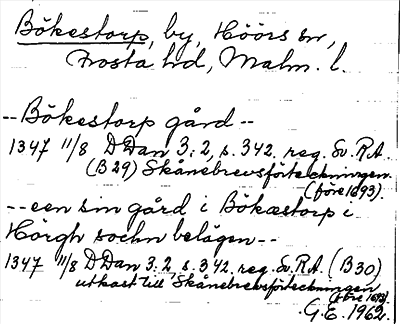 Bökestorp, by, Höörs sn,
Frosta hd, Malm. l.
-- Bökestorp gård --
1347 11/8 DDan 3:2, s. 342. reg. Sv. R.A.
(B29) Skånebrevsförteckningen.
(före 1693).
-- een sin gård i Bökæstorp i
Hörgh sochn belägen --
1347 11/8 DDan 3:2, s. 342. reg. Sv. R.A. (B30)
utkast till Skånebrevsförteckningen
(före 1693).
G.E. 1962.